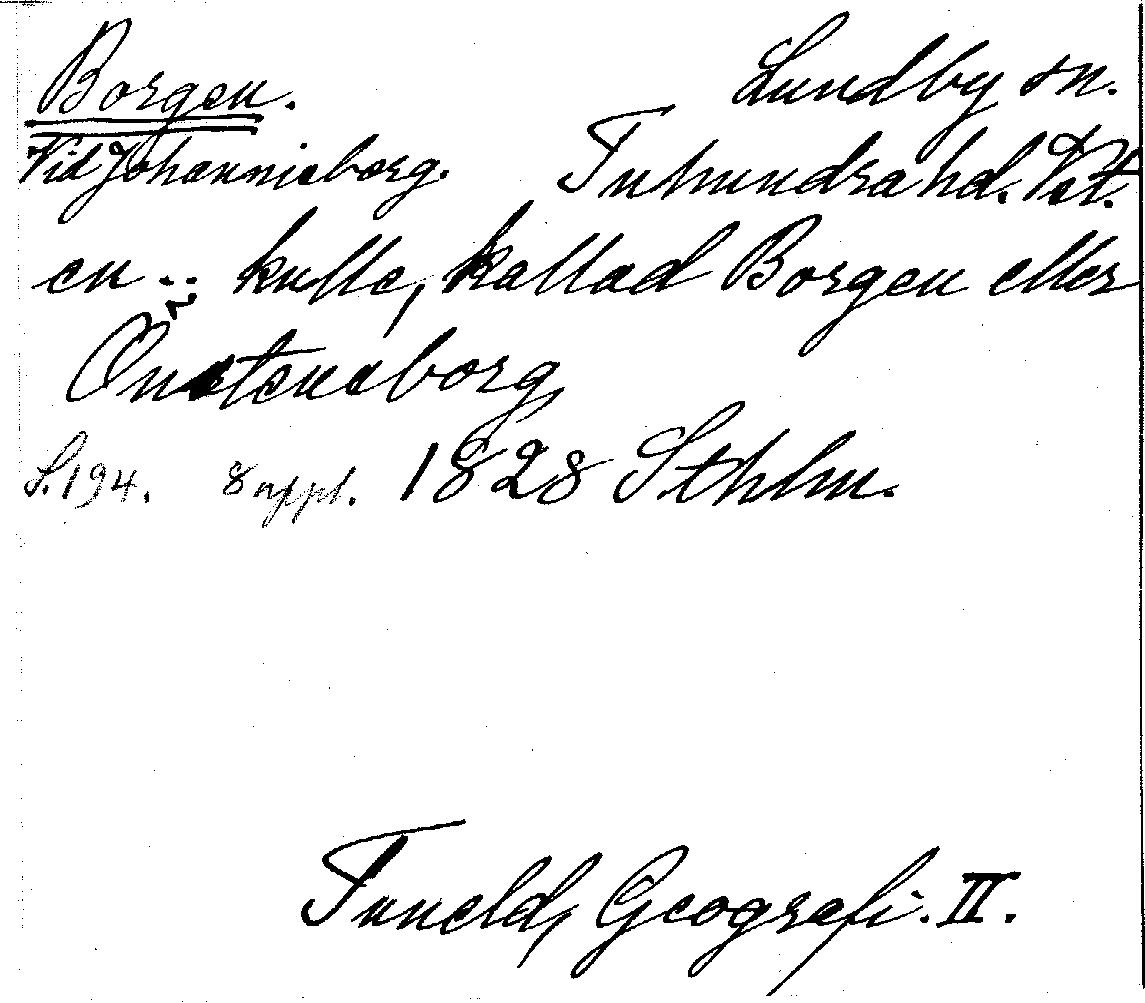 Borgen. Lundby sn.
Vid Johannisborg. Tuhundra hd. Vst.
en .. kulle, kallad Borgen eller
Önstensborg
S. 194. 8 uppl. 1828 Sthlm.
Tuneld, Geografi. II.